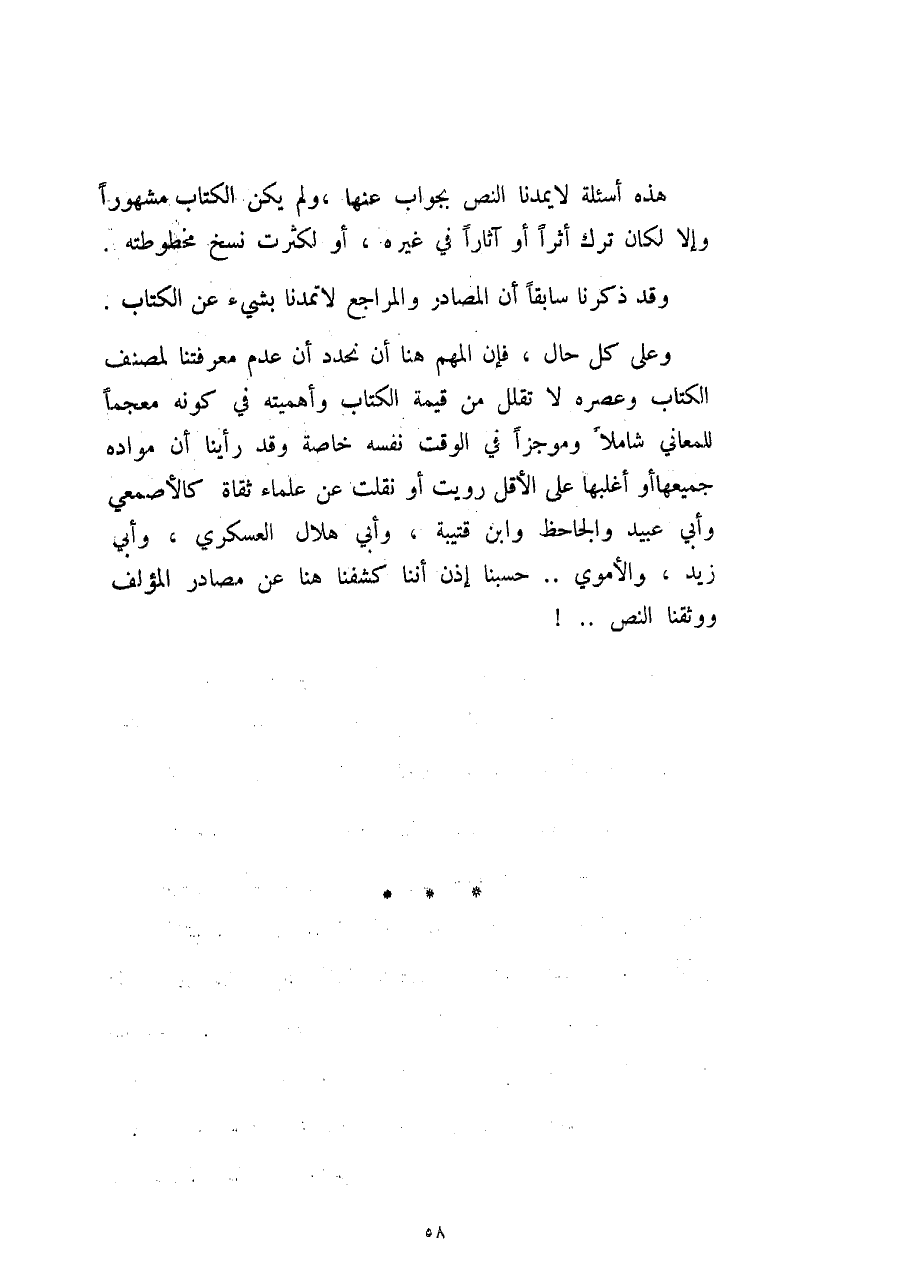 هذه أسئلة لايمدنا النص بجواب عنها ،ولم يكن الكتاب مشهوراً
وإلا لكان ترك أثراً أو آثاراً في غيره ، أو لكثرت نسخ مخطوطته .
وقد ذكرنا سابقاً أن المصادر والمراجع لاتمدنا بشيء عن الكتاب .
وعلى كل حال ، فإن المهم هنا أن نحدد أن عدم معرفتنا لمصنف
الكتاب وعصره لا تقلل من قيمة الكتاب وأهميته في كونه معجماً
للمعاني شاملاً وموجزاً في الوقت نفسه خاصة وقد رأينا أن مواده
جميعهاأو أغلبها على الأقل رويت أو نقلت عن علماء ثقاة كالأصمعي
وأبي عبيد والجاحظ وابن قتيبة ، وأبي هلال العسكري ، وأبي
زيد ، والأموي .. حسبنا إذن أننا كشفنا هنا عن مصادر المؤلف
ووثقنا النص .. !
* * *
٥٨